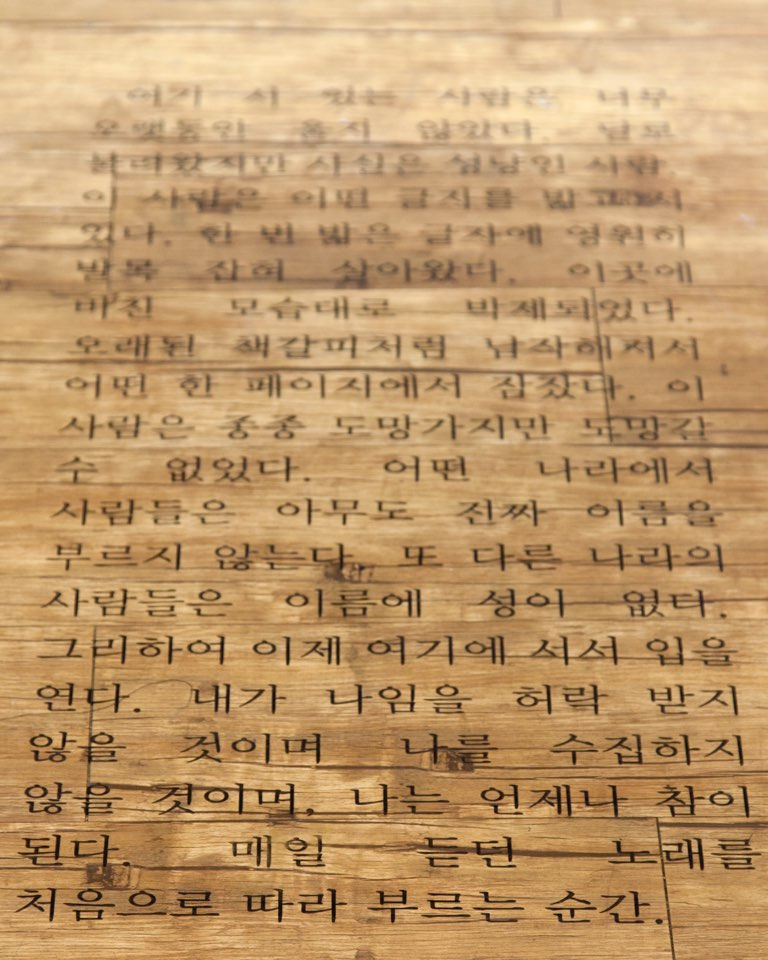 여기 서 있는 사람은 너무
오랫동안 움직이지 않았다. 말로
불려왔지만 사실은 성남인 사람.
이 사람은 어떤 글자를 밟고 서
있다. 한 번 밟은 글자에 영원히
발목 잡혀 살아왔다. 이곳에
바친 모습대로 박제되었다.
오래된 책갈피처럼 납작해져서
어떤 한 페이지에서 잠잤다. 이
사람은 종종 도망가지만 도망갈
수 없었다. 어떤 나라에서
사람들은 아무도 진짜 이름을
부르지 않는다. 또 다른 나라의
사람들은 이름에 성이 없다.
그리하여 이제 여기에 서서 입을
연다. 내가 나임을 허락 받지
않을 것이며 나를 수집하지
않을 것이며, 나는 언제나 참이
된다. 매일 듣던 노래를
처음으로 따라 부르는 순간.